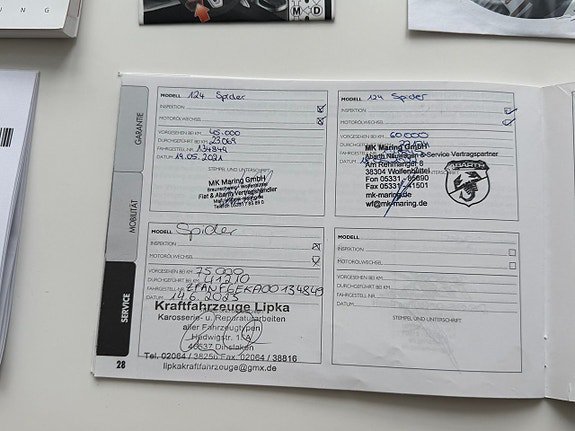 UNG
M D
GARANTIE
MOBILITÄT
SERVICE
MODELL 124 Spider
INSPEKTION
MOTORÖLWECHSEL
VORGESEHEN BEI KM 45.000
DURCHGEFÜHRT BEI KM 23069
FAHRGESTELL NR. 134849
DATUM 19.05.2021
STEMPEL UND UNTERSCHRIFT
MK Maring GmbH
Fiat & Abarth Vertragshändler
MODELL 124 Spider
INSPEKTION
MOTORÖLWECHSEL
VORGESEHEN BEI KM 60.000
DURCHGEFÜHRT BEI KM
FAHRGESTELL NR.
DATUM
MK Maring GmbH
Abarth Neuwagen & Service Vertragspartner
Am Rehmanger 8
38304 Wolfenbüttel
Fon 05331-
Fax 05331- 41501
mk-maring.de
wf@mk-maring.de
ABARTH
MODELL Spider
INSPEKTION
MOTORÖLWECHSEL
VORGESEHEN BEI KM 75.000
DURCHGEFÜHRT BEI KM 41210
FAHRGESTELL NR. ZFANFGEKA00134849
DATUM 14.6.2023
Kraftfahrzeuge Lipka
Karosserie- u. Reparaturarbeiten
aller Fahrzeugtypen
Hedwigstr. 11A
46537 Dinslaken
Tel. 02064 / 38256 Fax 02064 / 38816
lipkakraftfahrzeuge@gmx.de
MODELL
INSPEKTION
MOTORÖLWECHSEL
VORGESEHEN BEI KM
DURCHGEFÜHRT BEI KM
FAHRGESTELL NR.
DATUM
STEMPEL UND UNTERSCHRIFT
28